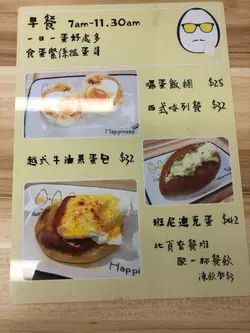 早餐 7am-11.30am
一日一蛋好處多
食蛋緊係搵蛋哥
嘥蛋飯糰 $25
西式奄列餐 $32
Happiness
越式牛油果蛋包 $32
班尼迪克蛋 $42
此頁套餐均
配一杯餐飲
凍飲加$3
Happi